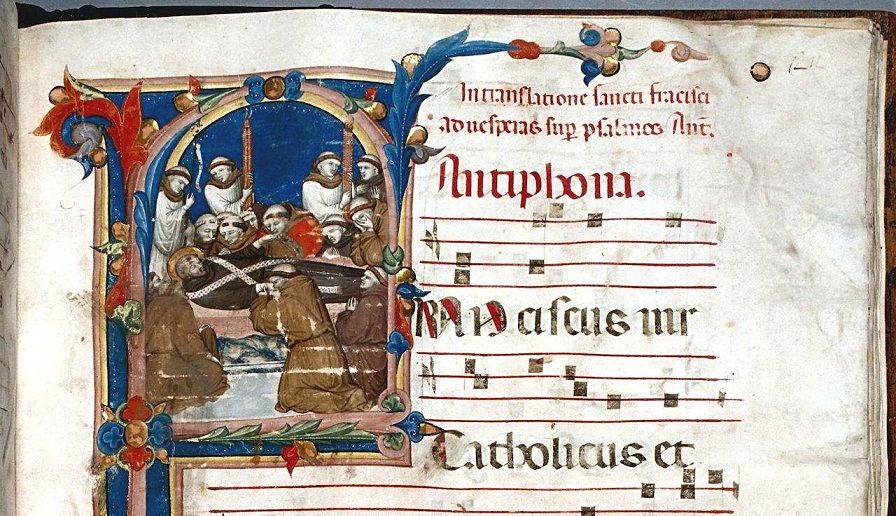 In translatione sancti fracisci
ad uesperas sup psalmos Ant.
Antiphona.
RANciscus uir
Catholicus et